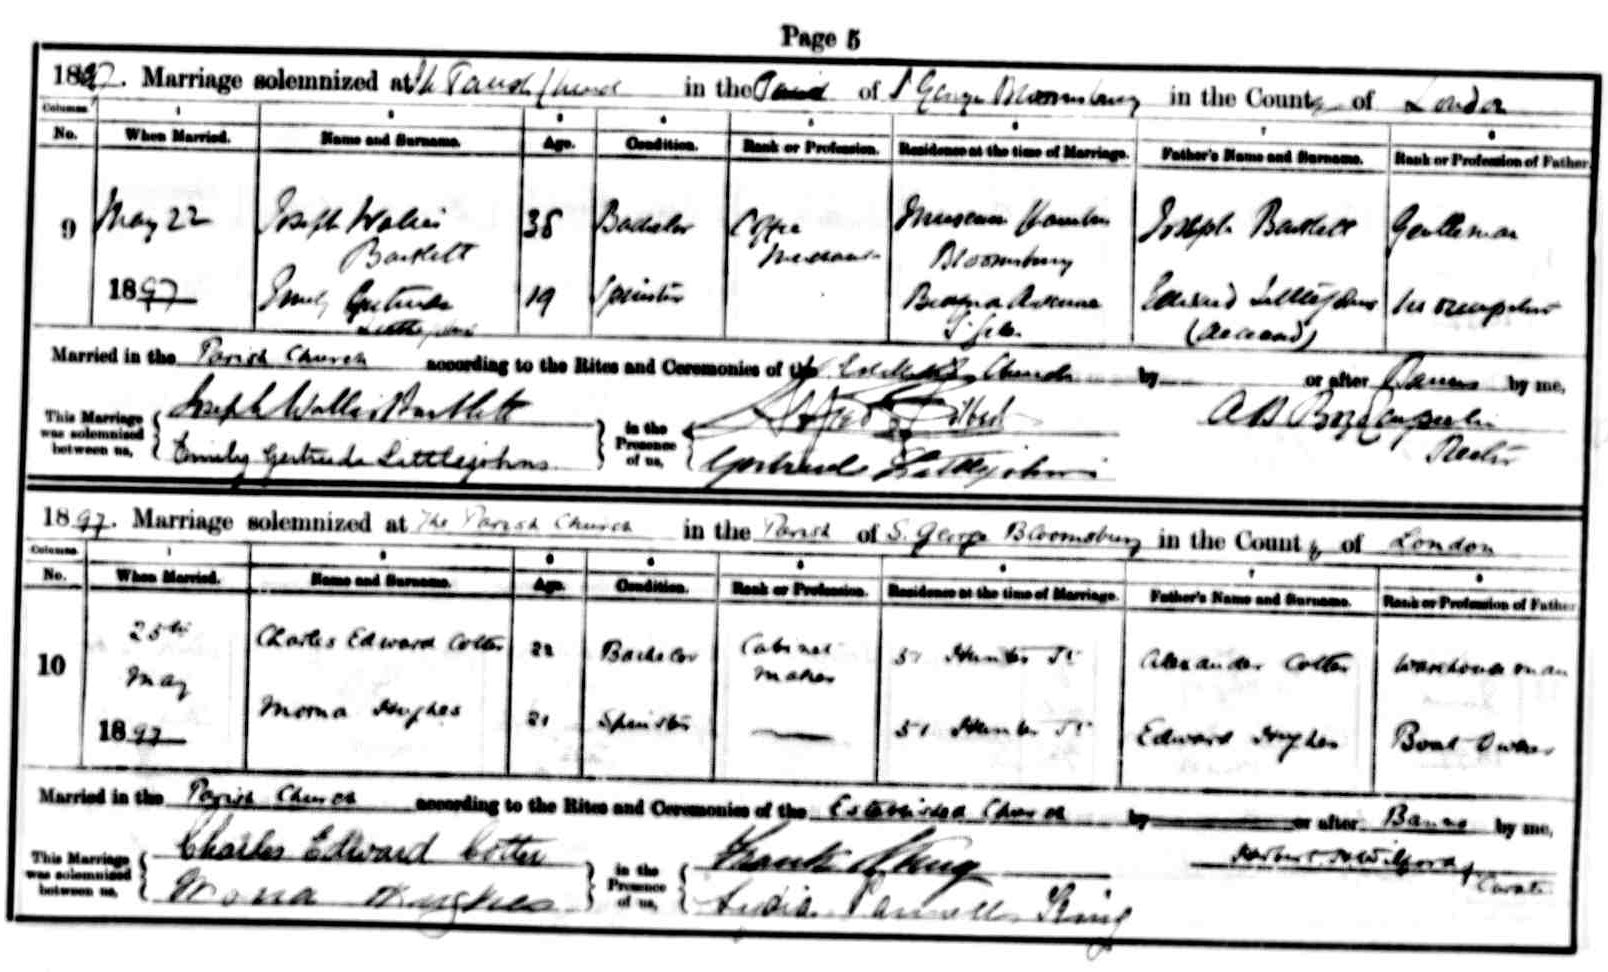 Page 5
1897. Marriage solemnized at The Parish Church in the Parish of S George Bloomsbury in the County of London
Columns 1 2 3 4 5 6 7 8
No. When Married. Name and Surname. Age. Condition. Rank or Profession. Residence at the time of Marriage. Father's Name and Surname. Rank or Profession of Father
9 May 22 Joseph Wallis 38 Bachelor Coffee Museum Chambers Joseph Bartlett Gentleman
Bartlett Merchant Bloomsbury
1897 Emily Gertrude 19 Spinster Avenue Edward Littlejohns
Littlejohns (deceased)
Married in the Parish Church according to the Rites and Ceremonies of the Established Church by or after Banns by me,
This Marriage was solemnized between us, Joseph Wallis Bartlett in the Presence of us, Alfred Gilbert
Emily Gertrude Littlejohns Gertrude Littlejohns Rector
1897. Marriage solemnized at The Parish Church in the Parish of S. George Bloomsbury in the County of London
Columns 1 2 3 4 5 6 7 8
No. When Married. Name and Surname. Age. Condition. Rank or Profession. Residence at the time of Marriage. Father's Name and Surname. Rank or Profession of Father
10 25th Charles Edward Cotter 22 Bachelor Cabinet 51 Hunter St Alexander Cotter Warehouseman
May Maker
1897 Morna Hughes 21 Spinster 51 Hunter St Edward Hughes Boat Owner
Married in the Parish Church according to the Rites and Ceremonies of the Established Church by or after Banns by me,
This Marriage was solemnized between us, Charles Edward Cotter in the Presence of us, Frank King Curate
Morna Hughes Lydia King